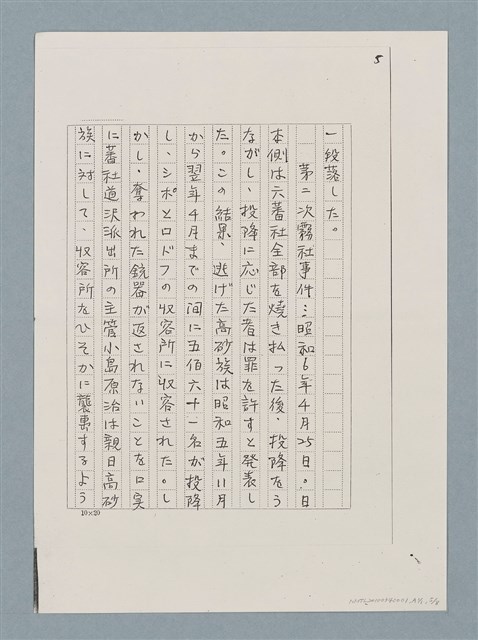 5
一段落した。
第二次霧社事件：昭和6年4月25日。日
本側は六蕃社全部を焼き払った後、投降をう
ながし、投降に応じた者は罪を許すと発表し
た。この結果、逃げた高砂族は昭和五年11月
から翌年4月までの間に五佰六十一名が投降
し、シポとロドフの収容所に収容された。し
かし、奪われた銃器が返されないことを口実
に蕃社道沢派出所の主管小島原治は親日高砂
族に対して、収容所をひそかに襲事するよう
10×20